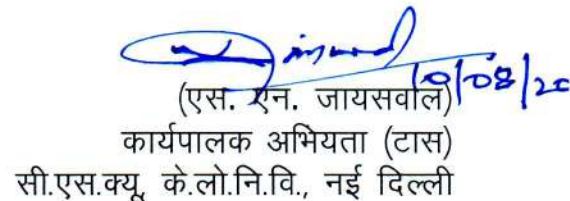 10/08/20
(एस. एन. जायसवाल)
कार्यपालक अभियता (टास)
सी.एस.क्यू, के.लो.नि.वि., नई दिल्ली